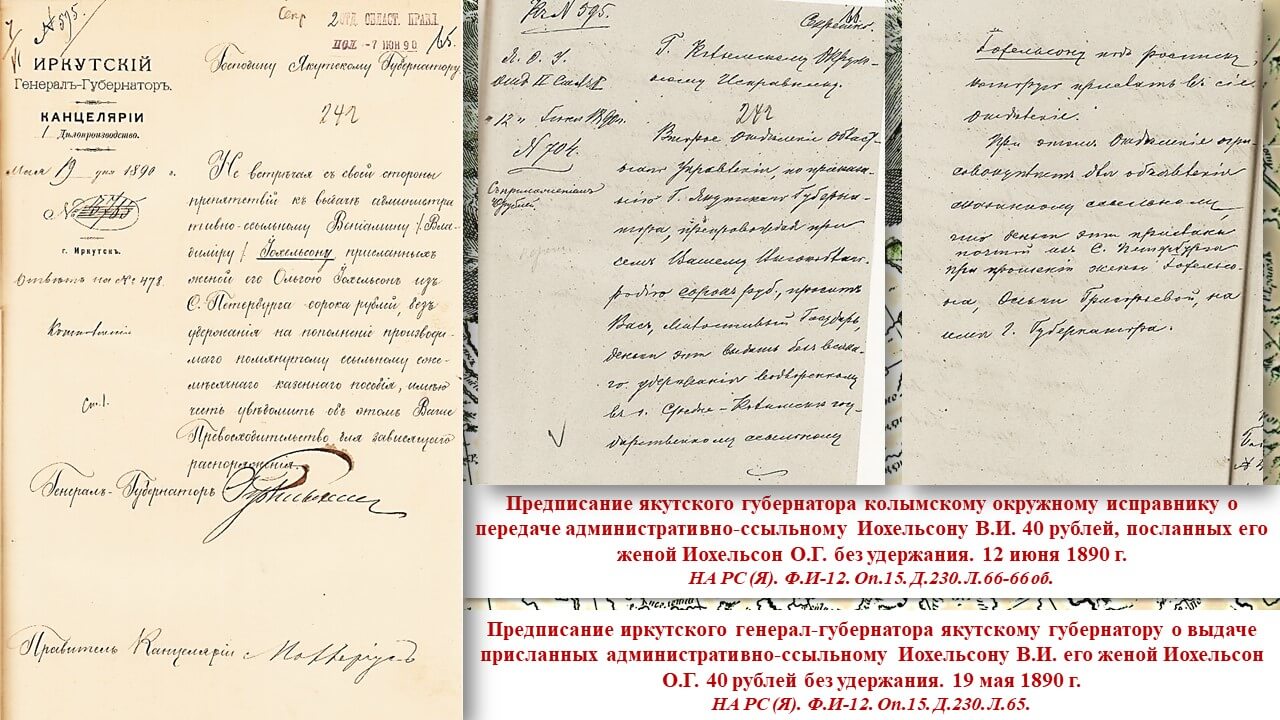 № 595.
Секр
2 ОТД. ОБЛАСТ. ПРАВЛ.
ПОЛ. -7 ИЮН 90
65.
ИРКУТСКІЙ
Генералъ-Губернаторъ.
КАНЦЕЛЯРІИ
1 Дѣлопроизводство.
Мая 19 дня 1890 г.
№
г. Иркутскъ.
Отвѣтъ на № 478.
Господину Якутскому Губернатору
242
Не встрѣчая съ своей стороны
препятствій къ выдачѣ администра
тивно-ссыльному Веніамину / Вла-
диміру / Іохельсону присланныхъ
женой его Ольгою Іохельсонъ изъ
С. Петербурга сорока рублей, безъ
удержанія на пополненіе производи-
маго помянутому ссыльному еже-
мѣсячнаго казеннаго пособія, имѣю
честь увѣдомить объ этомъ Ваше
Превосходительство для зависящаго
распоряженія.
Генералъ-Губернаторъ
Правитель Канцеляріи
К № 595.
66.
Секретно.
Я. О. У.
Отд II Столъ I
"12" Іюня 1890 г.
№ 704.
Съ приложеніемъ
40 рублей
Г. Колымскому Окруж-
ному Исправнику.
242
Второе отдѣленіе област-
наго Управленія по приказа-
нію Г. Якутскаго Губерна-
тора, препровождая при
семъ Вашему Высокобла-
родію сорокъ руб, проситъ
Васъ, Милостивый Государь,
деньги эти выдать безъ всяка-
го удержанія водворенному
въ г. Средне-Колымскѣ госу-
дарственному ссыльному
Іохельсону подъ росписку,
которую прислать въ сіе
отдѣленіе.
При этомъ Отдѣленіе
для объявленія
ссыльному,
что деньги эти присланы
почтой изъ С. Петербурга
при прошеніи женой Іохельсо-
на, Ольги Григорьевой, на
имя г. Губернатора.
Предписание якутского губернатора колымскому окружному исправнику о
передаче административно-ссыльному Иохельсону В.И. 40 рублей, посланных его
женой Иохельсон О.Г. без удержания. 12 июня 1890 г.
НА РС (Я). Ф.И-12. Оп.15. Д.230.Л.66-66 об.
Предписание иркутского генерал-губернатора якутскому губернатору о выдаче
присланных административно-ссыльному Иохельсону В.И. его женой Иохельсон
О.Г. 40 рублей без удержания. 19 мая 1890 г.
НА РС (Я). Ф.И-12. Оп.15. Д.230.Л.65.